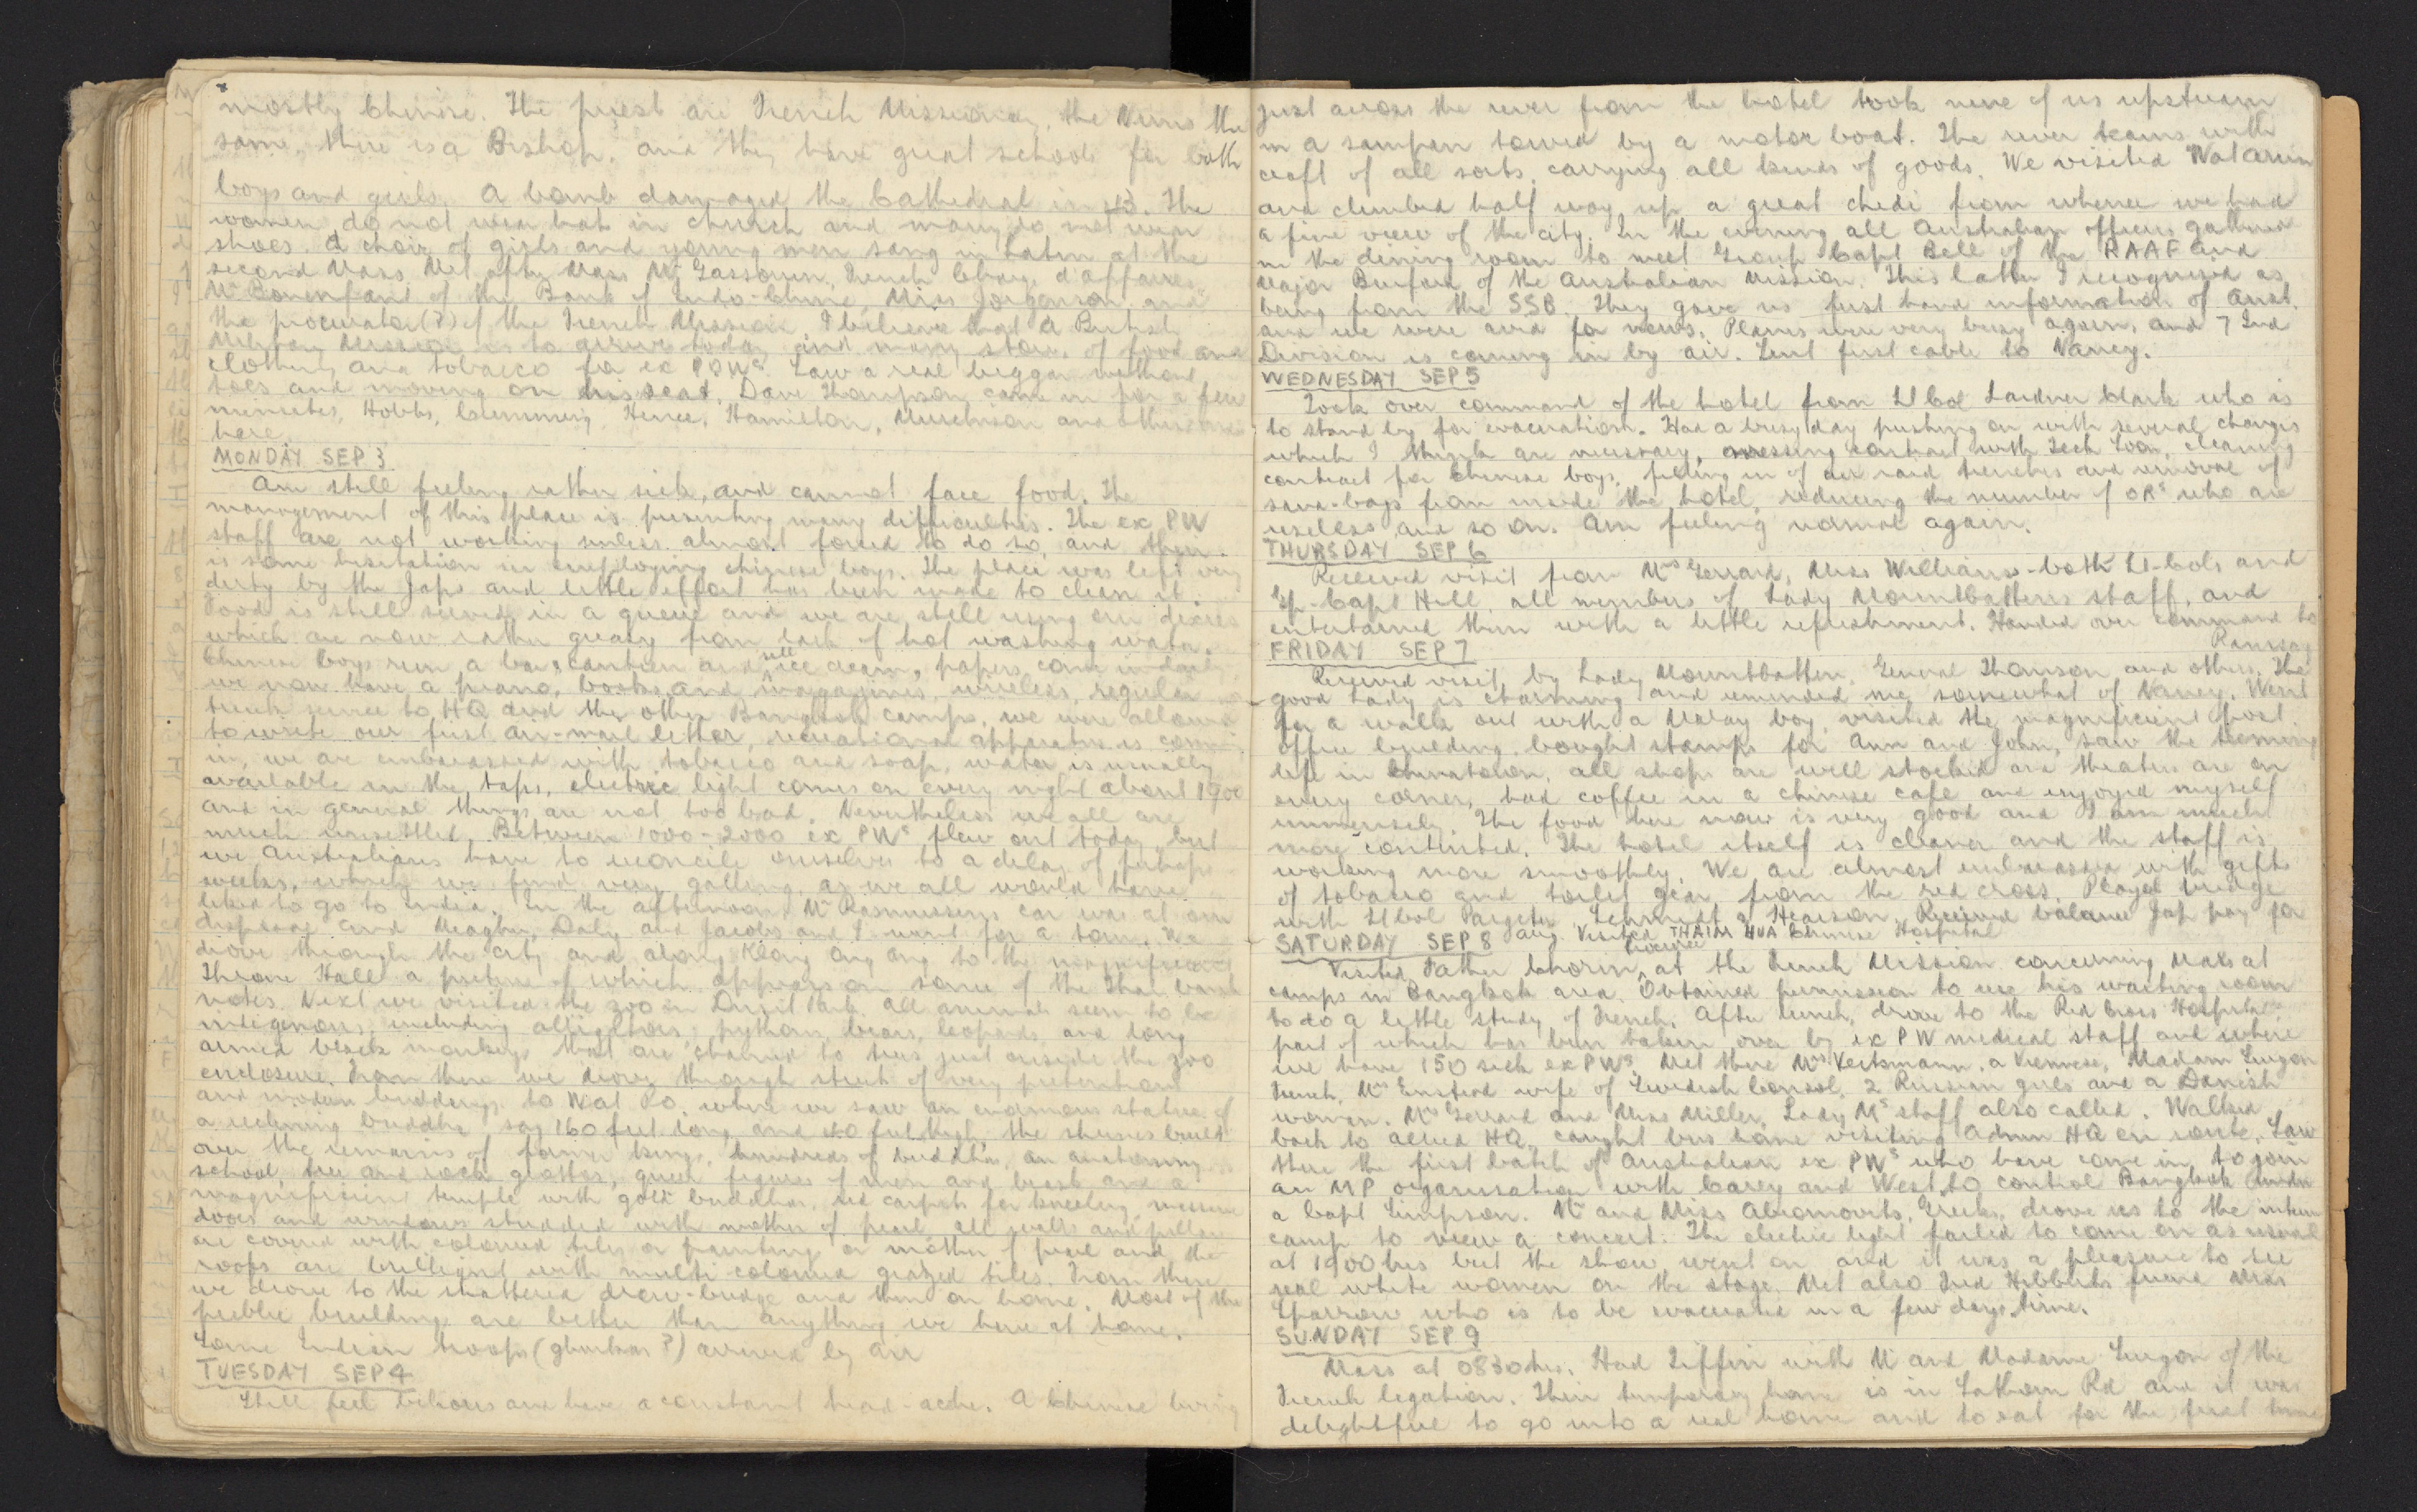 mostly Chinese. The priest are French Missionary, the Nuns the
same, there is a Bishop, and they have great schools for both
boys and girls. A bomb damaged the Cathedral in 43. The
women do not wear hats in church and many do not wear
shoes. A choir of girls and young men sang in Latin at the
second Mass. Met after Mass Mr Gassouin, French Charge d'affaires,
Mr Bonenfant of the Bank of Indo-Chine, Miss Jorgenson and
the procurator(?) of the French Mission. I believe that a British
Military Mission is to arrive today and many stores of food and
clothing and tobacco for ex POWs. Saw a real beggar without
toes and moving on his seat. Dave Thompson came in for a few
minutes, Hobbs, Cumming, Hence, Hamilton, Murchison and others are
here.
MONDAY SEP 3
Am still feeling rather sick, and cannot face food. The
management of this place is presenting many difficulties. The ex PW
staff are not working unless almost forced to do so, and there
is some hesitation in employing chinese boys. The place was left very
dirty by the Japs and little effort has been made to clean it.
Food is still served in a queue and we are still using our dixies
which are now rather greasy from lack of hot washing water.
Chinese boys run a bar & canteen and sell ice cream, papers come in daily
we now have a piano, books, and magazines, wireless, regular
truck service to HQ and the other Bangkok camps, we were allowed
to write our first air-mail letter, recreational apparatus is coming
in, we are embarrassed with tobacco and soap, water is usually
available in the taps, electric light comes on every night about 1900
and in general things are not too bad. Nevertheless we all are
much unsettled. Between 1000-2000 ex PWs flew out today but
we Australians have to reconcile ourselves to a delay of perhaps
weeks, which we find very galling, as we all would have
liked to go to India. In the afternoon Mr Rasmussens car was at our
disposal and Meagher, Daly and Jacobs and I went for a tour. We
drove through the city and along Klong Ong Ang to the magnificent
Throne Hall a picture of which appears on some of the Thai bank
notes. Next we visited the zoo in Dusit Park. All animals seem to be
indigenous, including alligators, pythons, bears, leopards and long
armed black monkeys that are chained to trees just outside the zoo
enclosure. From there we drove through street of very pretentious
and modern buildings to Wat Po, where we saw an enormous statue of
a reclining buddha, say 160 feet long and 40 feet high, the shrines built
over the remains of former kings, hundreds of buddhas, an anatomy
school, tree and rock grottos, queer figures of men and beast and a
magnificent temple with gold buddhas, red carpets for kneeling, massive
doors and windows studded with mother of pearl, all walls and pillars
are covered with coloured tiles or paintings or mother of pearl and the
roofs are brilliant with multi-coloured glazed tiles. From there
we drove to the shattered draw-bridge and then on home. Most of the
public buildings are better than anything we have at home.
Some Indian troops (ghurkas?) arrived by air
TUESDAY SEP 4
Still feel bilious and have a constant head-ache. A Chinese living
just across the river from the hotel took nine of us upstream
in a sampan towed by a motor boat. The river teams with
craft of all sorts, carrying all kinds of goods. We visited Wat Arun
and climbed half way up a great chedi from whence we had
a fine view of the city. In the evening all Australian officers gathered
in the dining room to meet Group Capt Bell of the RAAF and
Major of the Australian Mission. This latter I recognised as
being from the SSB. They gave us first hand information of Aust.
and we were avid for news. Planes were very busy again, and 7 Ind
Division is coming in by air. Sent first cable to Nancy.
WEDNESDAY SEP 5
Took over command of the hotel from Lt Col Lardner Clark who is
to stand by for evacuation. Had a busy day pushing on with several changes
which I think are necessary, messing contract with Teck Loon, cleaning
contract for Chinese boys, filling in of air raid trenches and removal of
sand-bags from inside the hotel, reducing the number of ORs who are
useless and so on. Am feeling normal again.
THURSDAY SEP 6
Received visit from Mrs Gerrard, Miss Williams - both Lt-Cols and
Gp-Capt Hill, all members of Lady Mountbattens staff, and
entertained them with a little refreshment. Handed over command to
Ramsay
FRIDAY SEP 7
Received visit by Lady Mountbatten, General Thomson and others. The
good Lady is charming and reminded me somewhat of Nancy. Went
for a walk out with a Malay boy, visited the magnificent post
office building, bought stamps for Ann and John, saw the teeming
life in Chinatown, all shops are well stocked and theatres are on
every corner, had coffee in a chinese cafe and enjoyed myself
immensely. The food here now is very good and I am much
more contented. The hotel itself is cleaner and the staff is
working more smoothly. We are almost embarrassed with gifts
of tobacco and toilet gear from the red cross. Played bridge
with Lt Col Pargeter, Schmidt & Hearson. Received balance Jap pay for
Aug. Visited THAIM HUA Chinese Hospital
SATURDAY SEP 8
Visited Father Chorin at the French Mission concerning Mass at
camps in Bangkok area. Obtained permission to use his waiting room
to do a little study of French. After lunch, drove to the Red Cross Hospital
part of which has been taken over by ex PW medical staff and where
we have 150 sick ex PWs. Met there Mrs Veitsmann, a Viennese, Madam Surgon
French, Mrs wife of Swedish Consul, 2 Russian girls and a Danish
woman. Mrs Gerrard and Miss Miller, Lady Ms staff also called. Walked
back to allied HQ, caught bus home visiting Admin HQ en route. Saw
there the first batch of Australian ex PWs who have come in to join
an MP organisation with Carey and West to control Bangkok under
a Capt Simpson. Mr and Miss Abramovits, Greeks, drove us to the intern
camp to view a concert. The electric light failed to come on as usual
at 1900 hrs but the show went on and it was a pleasure to see
real white women on the stage. Met also Fred Hibberts friend Miss
Sparrow who is to be evacuated in a few days time.
SUNDAY SEP 9
Mass at 0830 hrs. Had Tiffin with M and Madame Surgon of the
French legation. Their temporary home is in Sathorn Rd and it was
delightful to go into a real home and to eat for the first time